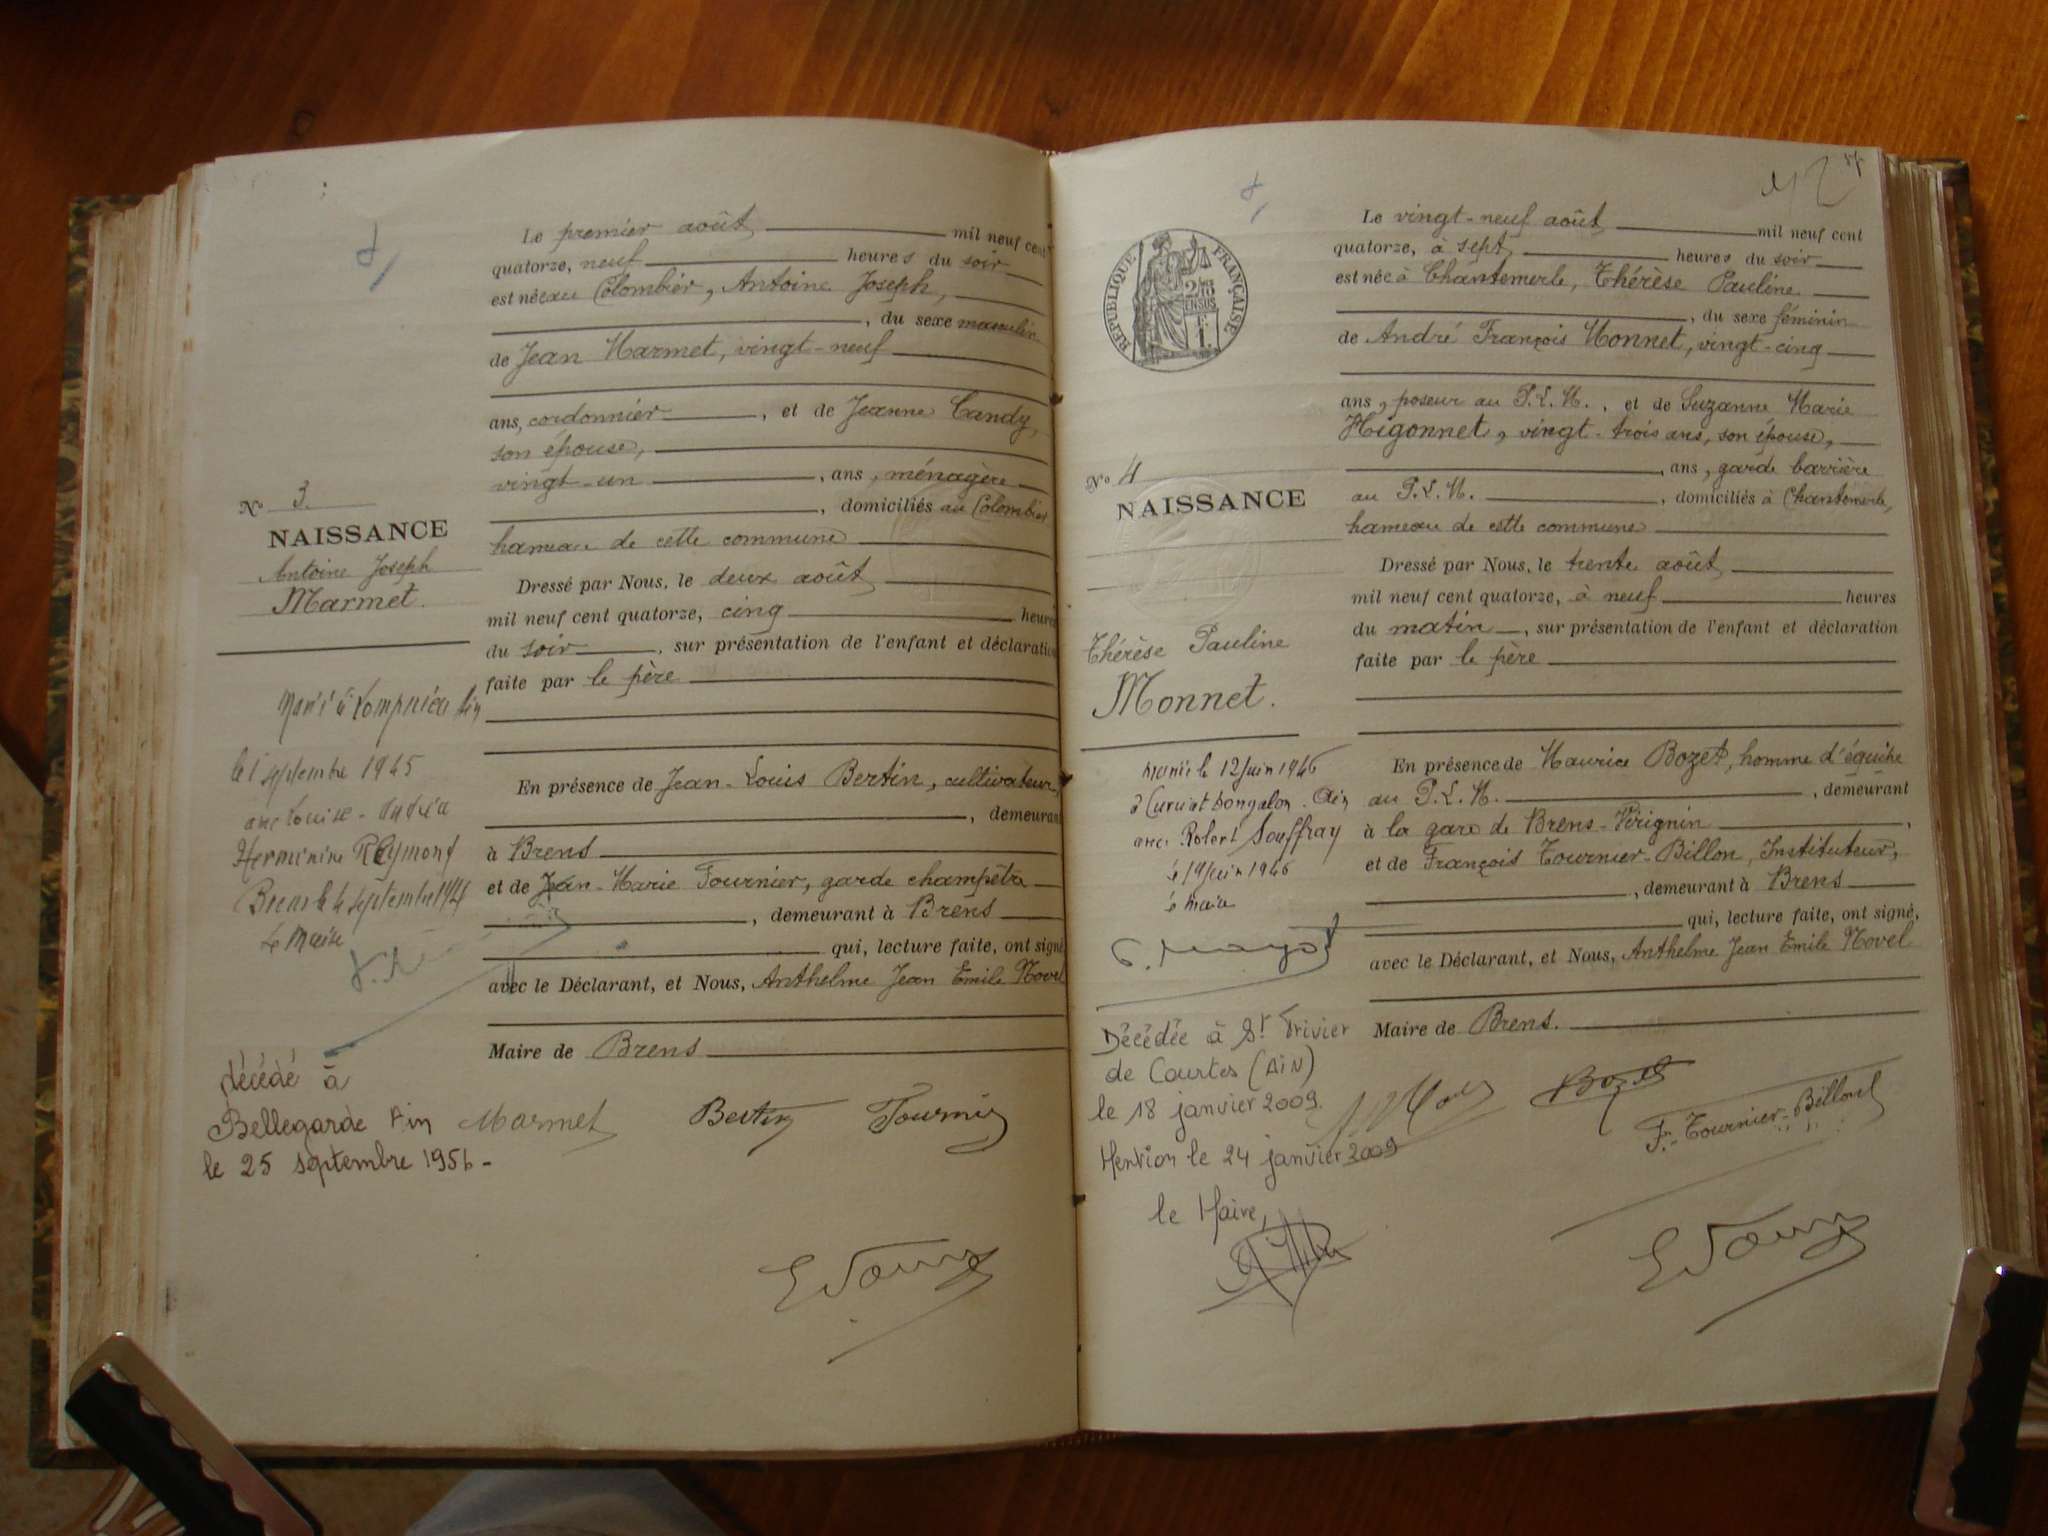 Le premier août mil neuf cent
quatorze, neuf heures du soir
est né au Colombier, Antoine Joseph,
, du sexe masculin
de Jean Marmet, vingt-neuf
ans, cordonnier, et de Jeanne Candy,
son épouse,
vingt-un, ans, ménagère
, domiciliés au Colombier
hameau de cette commune
Nº 3.
NAISSANCE
Antoine Joseph
Marmet.
Dressé par Nous, le deux août
mil neuf cent quatorze, cinq heures
du soir, sur présentation de l'enfant et déclaration
faite par le père
Marié à
le 1 septembre 1945
avec Louise - Andréa
Herminine Reymond
septembre 1945
Le Maire
En présence de Jean-Louis Bertin, cultivateur,
, demeurant
à Brens
et de Jean-Marie Fournier, garde champêtre
, demeurant à Brens
qui, lecture faite, ont signé
avec le Déclarant, et Nous, Anthelme Jean Emile Novel
Maire de Brens
décédé à
Bellegarde Ain
le 25 septembre 1956-
Marmet Bertin Fournier
RÉPUBLIQUE FRANÇAISE
2/10
EN SUS
1 f.
Le vingt-neuf août mil neuf cent
quatorze, à sept heures du soir
est née à Chantemerle, Thérèse Pauline
, du sexe féminin
de André François Monnet, vingt-cinq
ans, poseur au P.L.M., et de Suzanne Marie
Higonnet, vingt-trois ans, son épouse,
, ans, garde barrière
au P.L.M., domiciliés à Chantemerle,
hameau de cette commune
Nº 4
NAISSANCE
Thérèse Pauline
Monnet.
Dressé par Nous, le trente août
mil neuf cent quatorze, à neuf heures
du matin, sur présentation de l'enfant et déclaration
faite par le père
Mariée le 12 Juin 1946
à Curciat Dongalon. Ain
avec Robert Souffray
le 19 Juin 1946
Le Maire
En présence de Maurice Bozet, homme d'équipe
au P.L.M., demeurant
à la gare de Brens-Virignin,
et de François Tournier-Billon, Instituteur,
, demeurant à Brens
qui, lecture faite, ont signé,
avec le Déclarant, et Nous, Anthelme Jean Emile Novel
Maire de Brens.
Décédée à St Trivier
de Courtes (AiN)
le 18 janvier 2009.
Mention le 24 janvier 2009
le Maire,
Bozet
F. Tournier-Billon